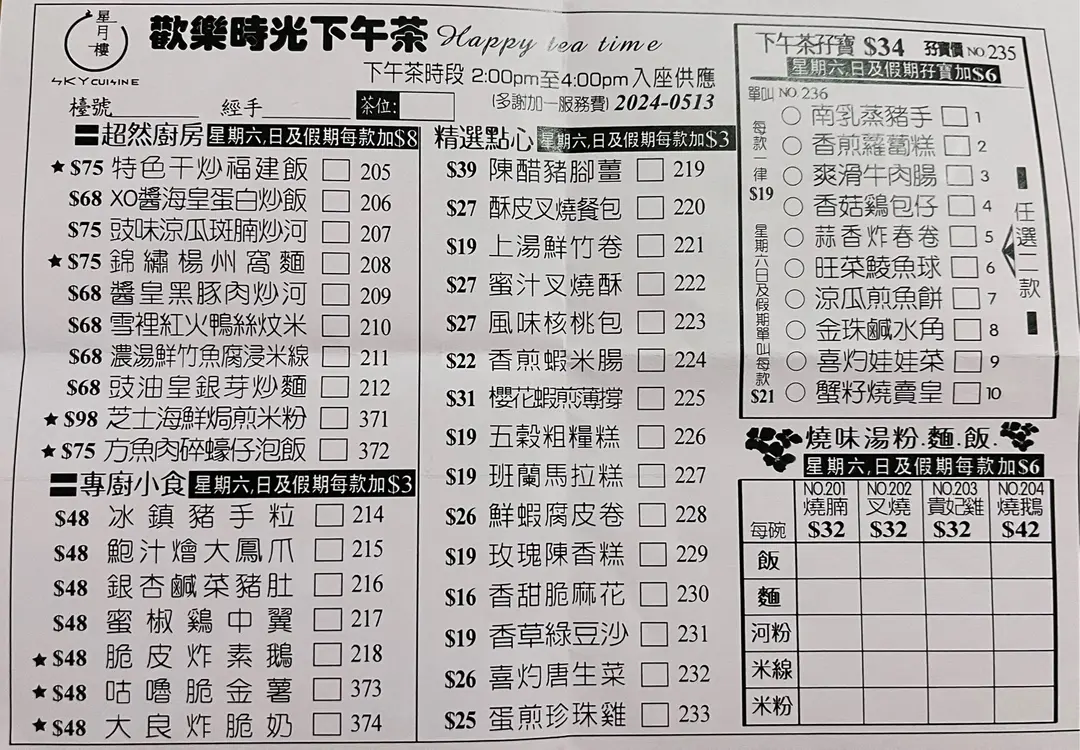 星月樓
SKY CUISINE
歡樂時光下午茶 Happy tea time
下午茶時段 2:00pm至4:00pm入座供應
(多謝加一服務費) 2024-0513
檯號 經手 茶位:
超然廚房 星期六,日及假期每款加$8
★$75 特色干炒福建飯 205
$68 XO醬海皇蛋白炒飯 206
$75 豉味涼瓜斑腩炒河 207
★$75 錦繡楊州窩麵 208
$68 醬皇黑豚肉炒河 209
$68 雪裡紅火鴨絲炆米 210
$68 濃湯鮮竹魚腐浸米線 211
$68 豉油皇銀芽炒麵 212
★$98 芝士海鮮焗煎米粉 371
★$75 方魚肉碎蠔仔泡飯 372
專廚小食 星期六,日及假期每款加$3
$48 冰鎮豬手粒 214
$48 鮑汁燴大鳳爪 215
$48 銀杏鹹菜豬肚 216
$48 蜜椒鷄中翼 217
★$48 脆皮炸素鵝 218
★$48 咕嚕脆金薯 373
★$48 大良炸脆奶 374
精選點心 星期六,日及假期每款加$3
$39 陳醋豬腳薑 219
$27 酥皮叉燒餐包 220
$19 上湯鮮竹卷 221
$27 蜜汁叉燒酥 222
$27 風味核桃包 223
$22 香煎蝦米腸 224
$31 櫻花蝦煎薄撐 225
$19 五穀粗糧糕 226
$19 班蘭馬拉糕 227
$26 鮮蝦腐皮卷 228
$19 玫瑰陳香糕 229
$16 香甜脆麻花 230
$19 香草綠豆沙 231
$26 喜灼唐生菜 232
$25 蛋煎珍珠雞 233
下午茶孖寶 $34 孖寶價 NO 235
星期六,日及假期孖寶加$6
單叫 NO 236
每款一律$19
星期六日及假期單叫每款$21
南乳蒸豬手 1
香煎蘿蔔糕 2
爽滑牛肉腸 3
香菇鷄包仔 4
蒜香炸春卷 5
旺菜鯪魚球 6
涼瓜煎魚餅 7
金珠鹹水角 8
喜灼娃娃菜 9
蟹籽燒賣皇 10
任選二款
燒味湯粉.麵.飯.
星期六,日及假期每款加$6
NO.201 NO.202 NO.203 NO.204
燒腩 叉燒 貴妃雞 燒鵝
每碗 $32 $32 $32 $42
飯
麵
河粉
米線
米粉